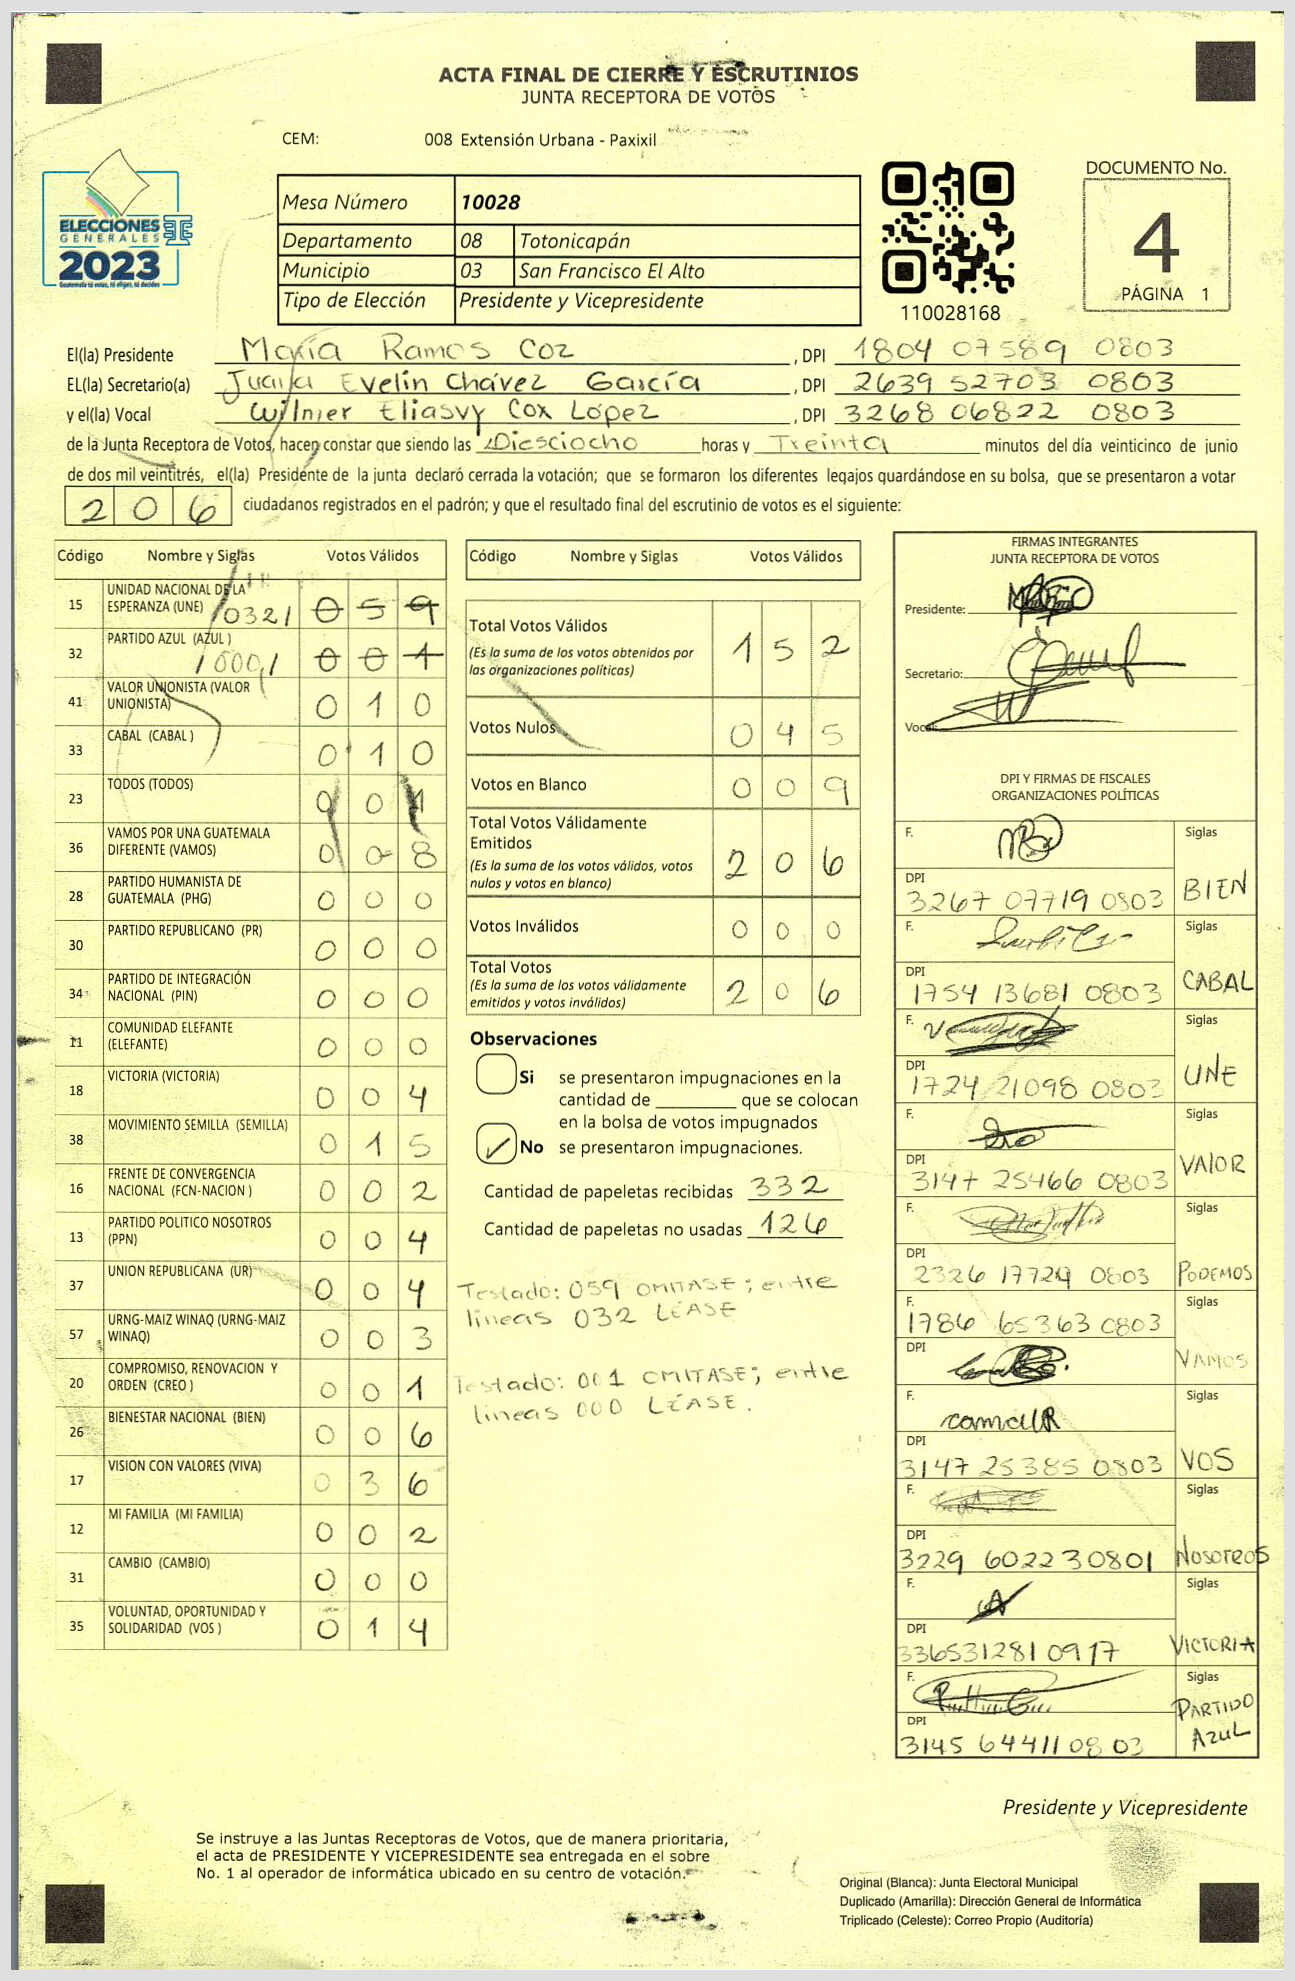 ACTA FINAL DE CIERRE Y ESCRUTINIOS
JUNTA RECEPTORA DE VOTOS
CEM: 008 Extensión Urbana - Paxixil
ELECCIONES
GENERALES
2023
Guatemala tú votas, tú eliges, tú decides
Mesa Número 10028
Departamento 08 Totonicapán
Municipio 03 San Francisco El Alto
Tipo de Elección Presidente y Vicepresidente
110028168
DOCUMENTO No.
4
PÁGINA 1
El(la) Presidente María Ramos Coz , DPI 1804 07589 0803
EL(la) Secretario(a) Juana Evelin Chávez García , DPI 2639 52703 0803
y el(la) Vocal Wilmer Eliasvy Cox López , DPI 3268 06822 0803
de la Junta Receptora de Votos, hacen constar que siendo las Diesciocho horas y Treinta minutos del día veinticinco de junio
de dos mil veintitrés, el(la) Presidente de la junta declaró cerrada la votación; que se formaron los diferentes legajos guardándose en su bolsa, que se presentaron a votar
206 ciudadanos registrados en el padrón; y que el resultado final del escrutinio de votos es el siguiente:
Código Nombre y Siglas Votos Válidos
15 UNIDAD NACIONAL DE LA ESPERANZA (UNE) /032/ 059
32 PARTIDO AZUL (AZUL ) /000/ 001
41 VALOR UNIONISTA (VALOR UNIONISTA) 010
33 CABAL (CABAL ) 010
23 TODOS (TODOS) 001
36 VAMOS POR UNA GUATEMALA DIFERENTE (VAMOS) 008
28 PARTIDO HUMANISTA DE GUATEMALA (PHG) 000
30 PARTIDO REPUBLICANO (PR) 000
34 PARTIDO DE INTEGRACIÓN NACIONAL (PIN) 000
11 COMUNIDAD ELEFANTE (ELEFANTE) 000
18 VICTORIA (VICTORIA) 004
38 MOVIMIENTO SEMILLA (SEMILLA) 015
16 FRENTE DE CONVERGENCIA NACIONAL (FCN-NACION ) 002
13 PARTIDO POLITICO NOSOTROS (PPN) 004
37 UNION REPUBLICANA (UR) 004
57 URNG-MAIZ WINAQ (URNG-MAIZ WINAQ) 003
20 COMPROMISO, RENOVACION Y ORDEN (CREO ) 001
26 BIENESTAR NACIONAL (BIEN) 006
17 VISION CON VALORES (VIVA) 036
12 MI FAMILIA (MI FAMILIA) 002
31 CAMBIO (CAMBIO) 000
35 VOLUNTAD, OPORTUNIDAD Y SOLIDARIDAD (VOS ) 014
Código Nombre y Siglas Votos Válidos
Total Votos Válidos 152
(Es la suma de los votos obtenidos por
las organizaciones políticas)
Votos Nulos 045
Votos en Blanco 009
Total Votos Válidamente
Emitidos 206
(Es la suma de los votos válidos, votos
nulos y votos en blanco)
Votos Inválidos 000
Total Votos 206
(Es la suma de los votos válidamente
emitidos y votos inválidos)
Observaciones
Si se presentaron impugnaciones en la
cantidad de ________ que se colocan
en la bolsa de votos impugnados
✓ No se presentaron impugnaciones.
Cantidad de papeletas recibidas 332
Cantidad de papeletas no usadas 126
Testado: 059 OMITASE; entre
líneas 032 LÉASE
Testado: 001 OMITASE; entre
líneas 000 LÉASE.
FIRMAS INTEGRANTES
JUNTA RECEPTORA DE VOTOS
Presidente:
Secretario:
Vocal:
DPI Y FIRMAS DE FISCALES
ORGANIZACIONES POLÍTICAS
F. Siglas
DPI 3267 07719 0803 BIEN
F. Siglas
DPI 1754 13681 0803 CABAL
F. Siglas
DPI 1724 21098 0803 UNE
F. Siglas
DPI 3147 25466 0803 VALOR
F. Siglas
DPI 2326 17729 0803 PODEMOS
F. 1786 65363 0803 Siglas
DPI VAMOS
F. Siglas
DPI 3147 25385 0803 VOS
F. Siglas
DPI 3229 60223 0801 NOSOTROS
F. Siglas
DPI 336531281 0917 VICTORIA
F. Siglas
DPI 3145 64411 0803 PARTIDO AZUL
Presidente y Vicepresidente
Se instruye a las Juntas Receptoras de Votos, que de manera prioritaria,
el acta de PRESIDENTE Y VICEPRESIDENTE sea entregada en el sobre
No. 1 al operador de informática ubicado en su centro de votación.
Original (Blanca): Junta Electoral Municipal
Duplicado (Amarilla): Dirección General de Informática
Triplicado (Celeste): Correo Propio (Auditoría)